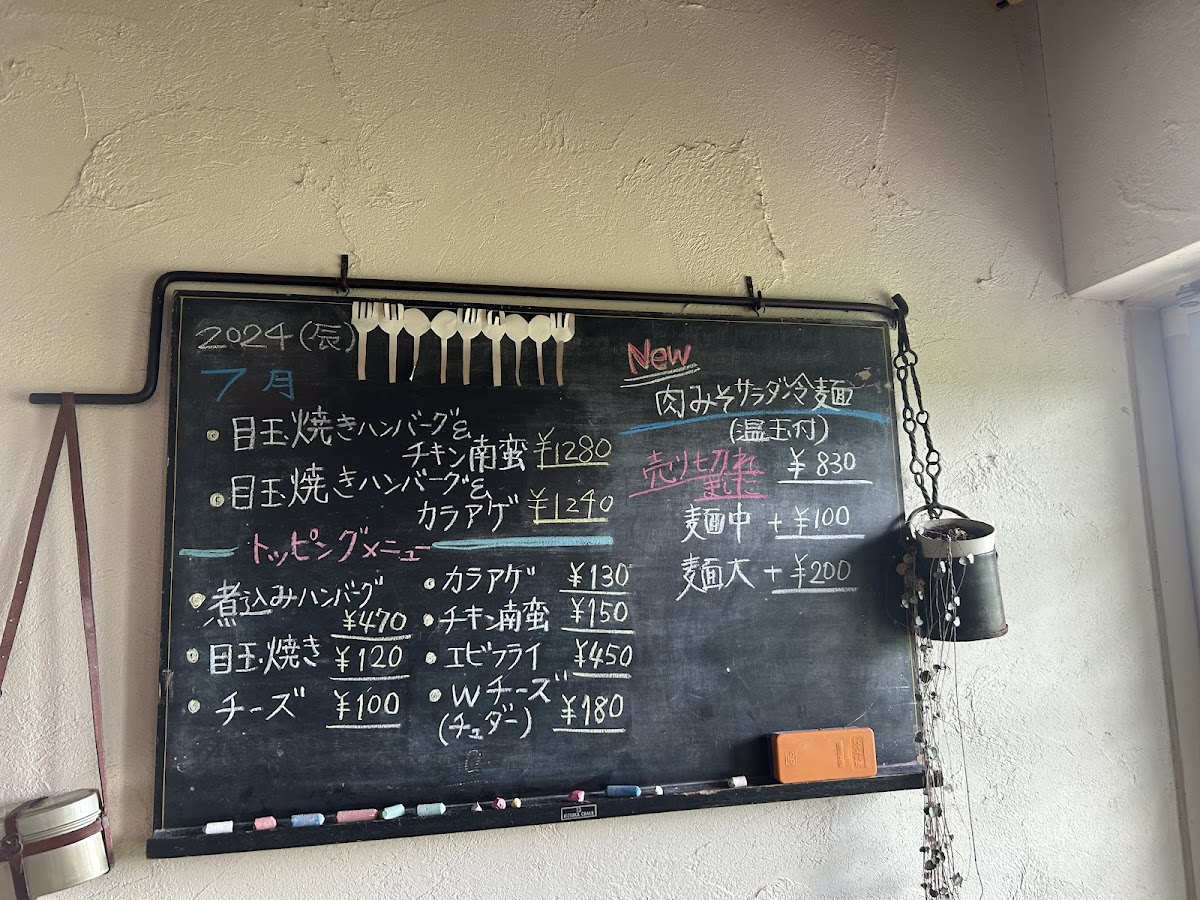 2024(辰)
7月
目玉焼きハンバーグ&
チキン南蛮 ¥1280
目玉焼きハンバーグ&
カラアゲ ¥1240
トッピングメニュー
煮込みハンバーグ
¥470
目玉焼き ¥120
チーズ ¥100
カラアゲ ¥130
チキン南蛮 ¥150
エビフライ ¥450
Wチーズ
(チェダー) ¥180
New
肉みそサラダ冷麺
(温玉付)
売り切れ
ました
¥830
麺中 +¥100
麺大 +¥200